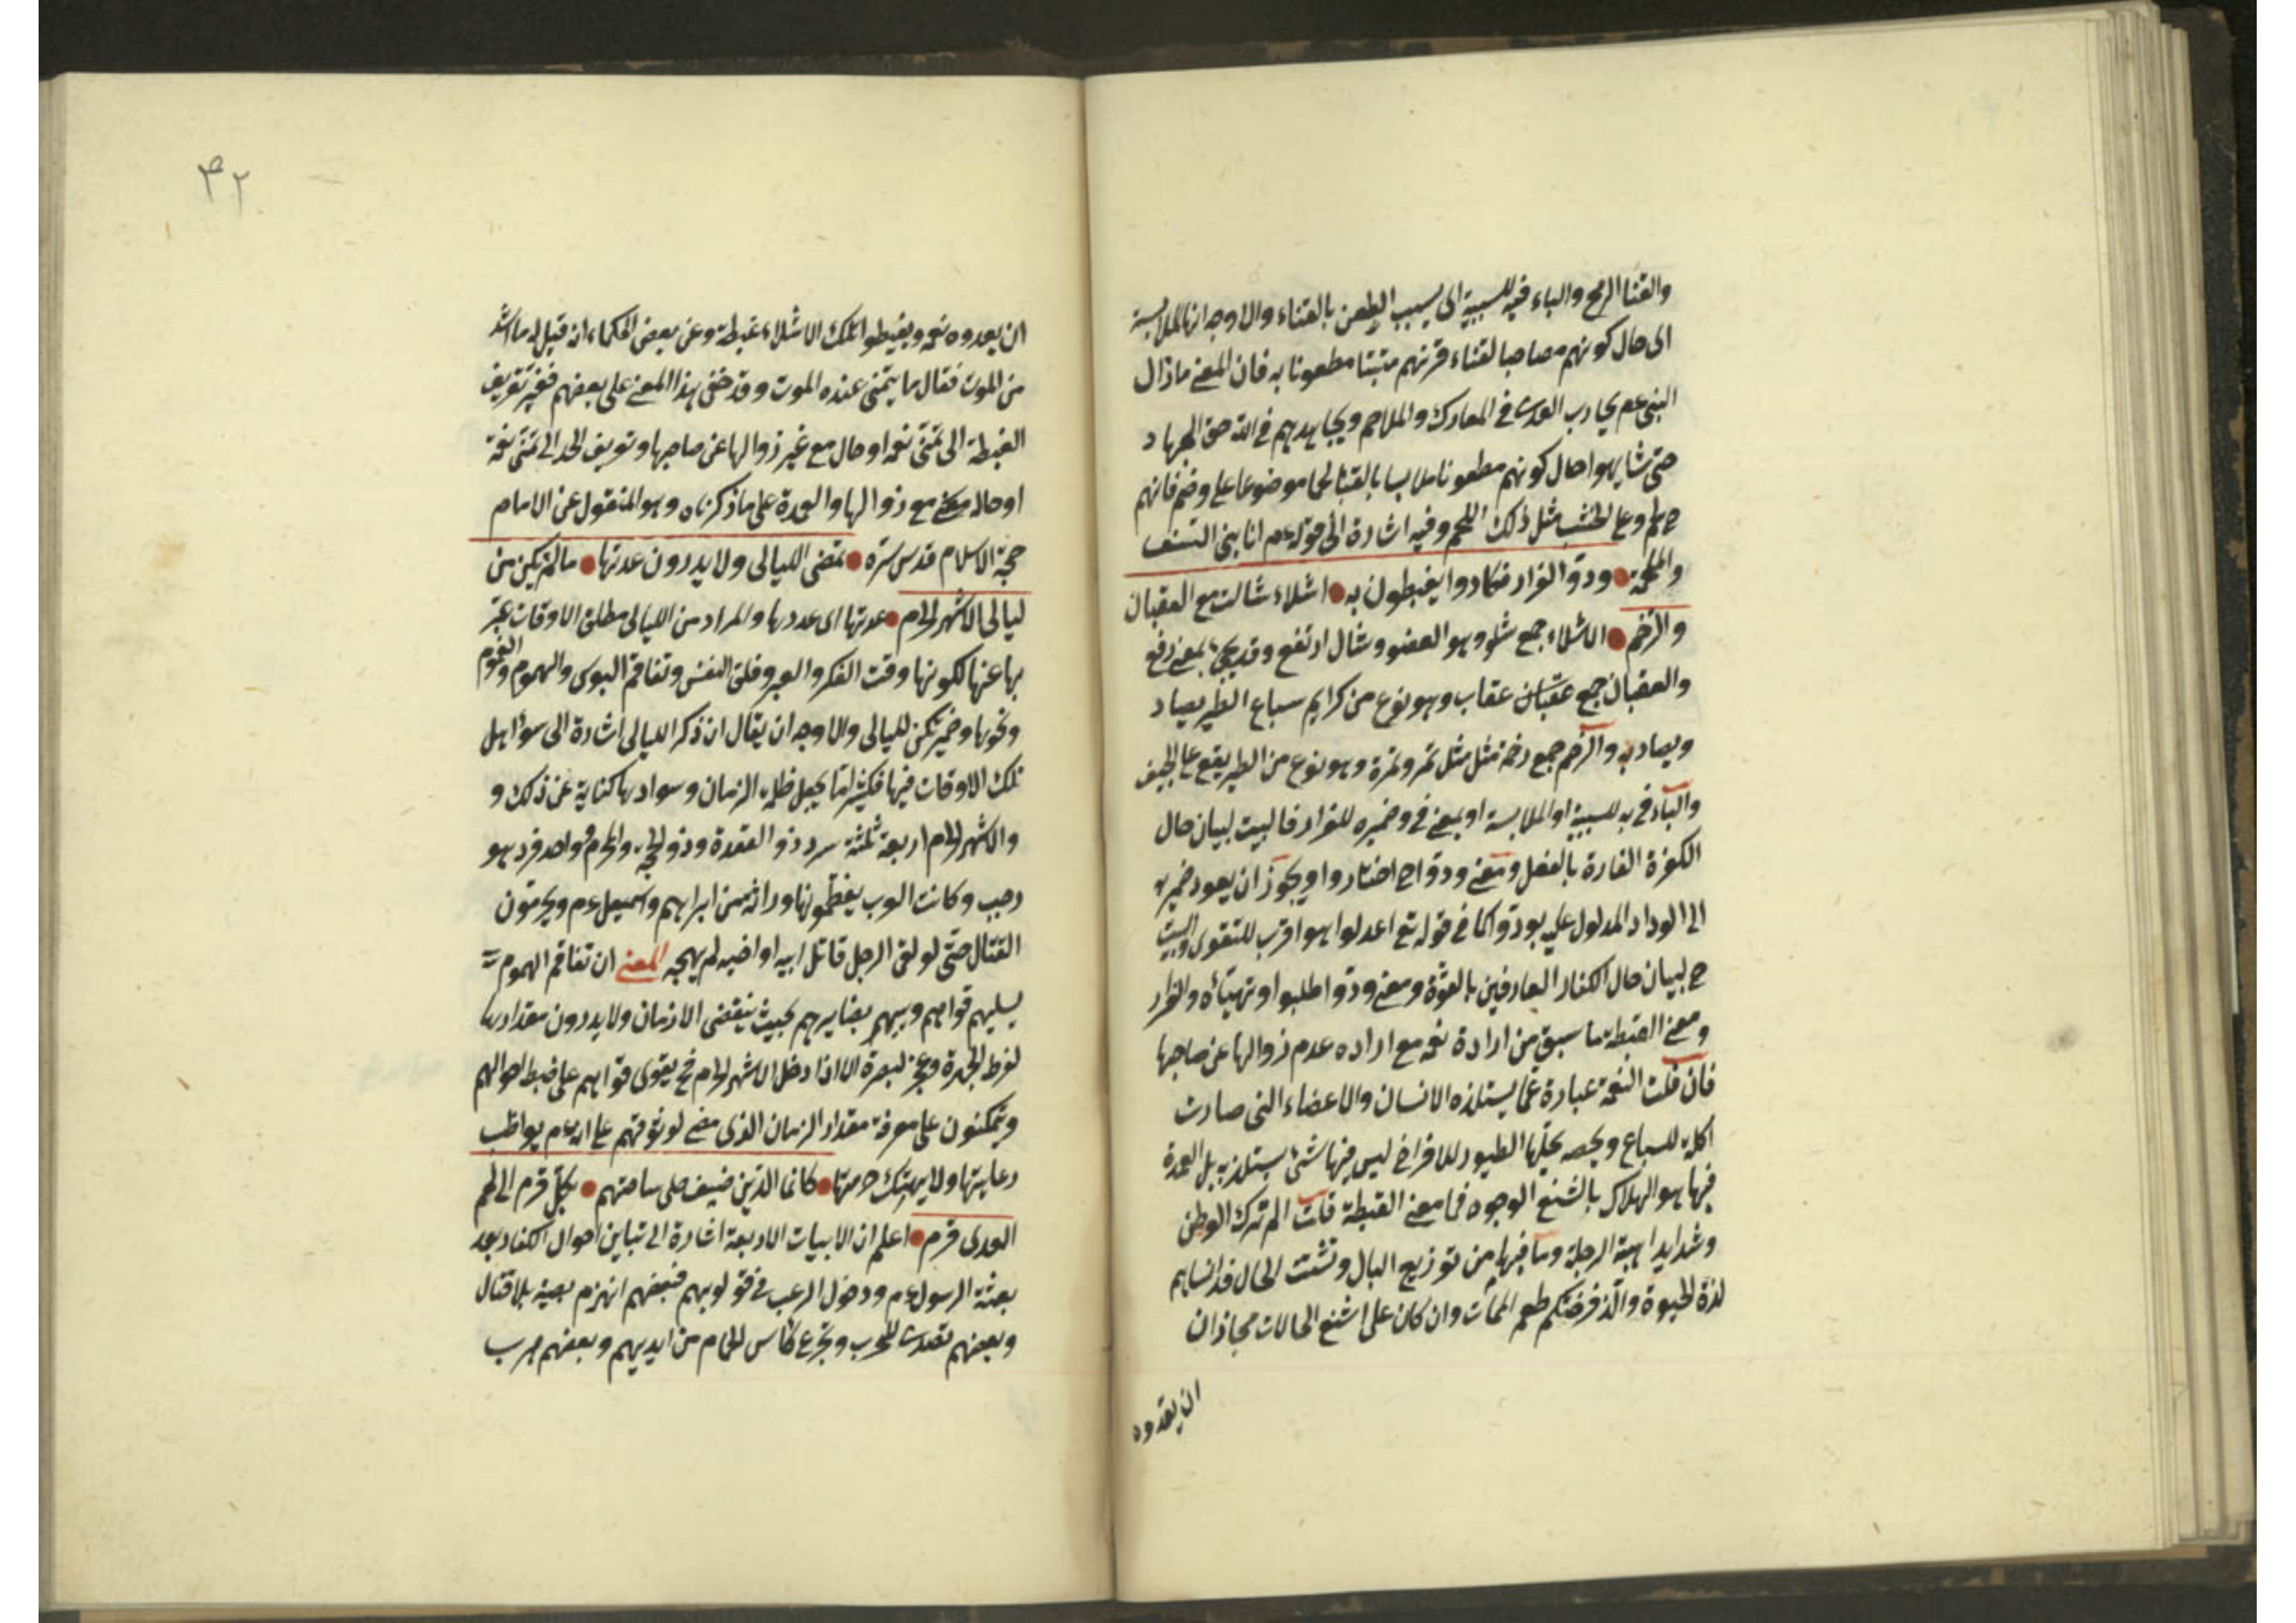 والقنا الرمح والباء فيه للسببية اى بسبب الطعن بالقناء والاوجه انها للملابسة
اى حال كونهم مصاحبا لقناء قرنهم مطعونا به فان المعنى مازال
النبى عم يحارب العدى فى المعارك والملاحم ويجاهدهم فى الله حق الجهاد
حتى شابهوا حال كونهم مطعونا ملابسا بالقنا لحما موضوعا على وضم فانهم
ح لحم وعلى الخشب مثل ذلك اللحم وفيه اشارة الى قوله عم انا بنى
والملحمة ودوا الفرار فكادوا يغبطون به اشلاء شالت مع العقبان
والرخم الاشلاء جمع شلو وهو العضو وشال ارتفع وقد يجئ بمعنى رفع
والعقبان جمع عقاب وهو نوع من كرايم سباع الطير يصاد
ويصاد به والرخم جمع رخمة مثل تمر وتمرة وهو نوع من الطير يقع على الجيف
والباء فى به للسببية او الملابسة او بمعنى فى وضميره للفرار فالبيت لبيان حال
الكفرة الفارة بالفعل ومعنى ودوا ح اختاروا ويجوز ان يعود ضمير به
الى الوداد المدلول عليه بودوا كما فى قوله تع اعدلوا هو اقرب للتقوى والبيت
ح لبيان حال الكفار العارفين بالقوة ومعنى ودوا طلبوا وتهيأه والفرار
ومعنى الغبطة ما سبق من ارادة نعمة مع اراده عدم زوالها عن صاحبها
فان قلت النعمة عبارة عما يستلذه الانسان والاعضاء التى صارت
اكلة للسباع وبحصه الطيور للافراخ ليس فيها شئ يستلذ به بل العمدة
فيها هو الهلاك باشنع الوجوه فما معنى الغبطة قلت الم ترك الوطن
وشدايد اهبة الرحلة وما فيها من توزيع البال وتشتت الحال قد انساهم
لذة الحيوة طعم الممات وان كان على اشنع الحالات فجاز ان
ان يعدوه
٤٢
ان يعدوه نعمة ويغبطوا لتلك الاشلاء غبطة وعن بعض الحكماء انه قيل له ما اشد
من الموت فقال ما يتمنى عنده الموت وقد خفى هذا المعنى على بعضهم فغير تعريف
الغبطة الى تمنى نعمة او حال مع غير زوالها عن صاحبها وتعريف الحسد الى تمنى نعمة
او حالة مع زوالها والعمدة على ما ذكرناه وهو المنقول عن الامام
حجة الاسلام قدس سره تمضى الليالى ولا يدرون عدتها مالم تكن من
ليالى الاشهر الحرم عدتها اى عددها والمراد من الليالى مطلق الاوقات عبر
بها عنها لكونها وقت الفكر والعبر وقلق النفس وتفاقم البوى والهموم والغموم
ونحوها وضمير تكن لليالى والاوجه ان يقال ان ذكر الليالى اشارة الى سوء اهل
تلك الاوقات فيها فكثيرا ما يجعل ظلمة الزمان وسوادها كناية عن ذلك و
والاشهر الحرم اربعة ثلثة سرد ذو القعدة وذو الحجة والمحرم وواحد فرد هو
رجب وكانت العرب يعظمونها وراثة من ابراهيم واسمعيل عم ويحرمون
القتال حتى لو لقى الرجل قاتل ابيه او اخيه لم يهجه المعنى ان تفاقم الهموم
يسليهم قواهم وبصايرهم بحيث ينقضى الازمان ولا يدرون مقدارها
لفرط الحيرة وعجز البصرة الا اذا دخل الاشهر الحرم فح يقوى قواهم على ضبط احوالهم
ويتمكنون على معرفة مقدار الزمان الذى مضى لوثوقهم على انه عم يواظب
رعايتها ولا يهتك حرمتها كانما الدين ضيف حل ساحتهم بكل قرم الى لحم
العدى قرم اعلم ان الابيات الاربعة اشارة الى تباين احوال الكفار بعد
بعثة الرسول عم ودخول الرعب فى قلوبهم فبعضهم انهزم بلا قتال
وبعضهم تصدى للحرب وتجرع كاس الحمام من ايديهم وبعضهم هرب